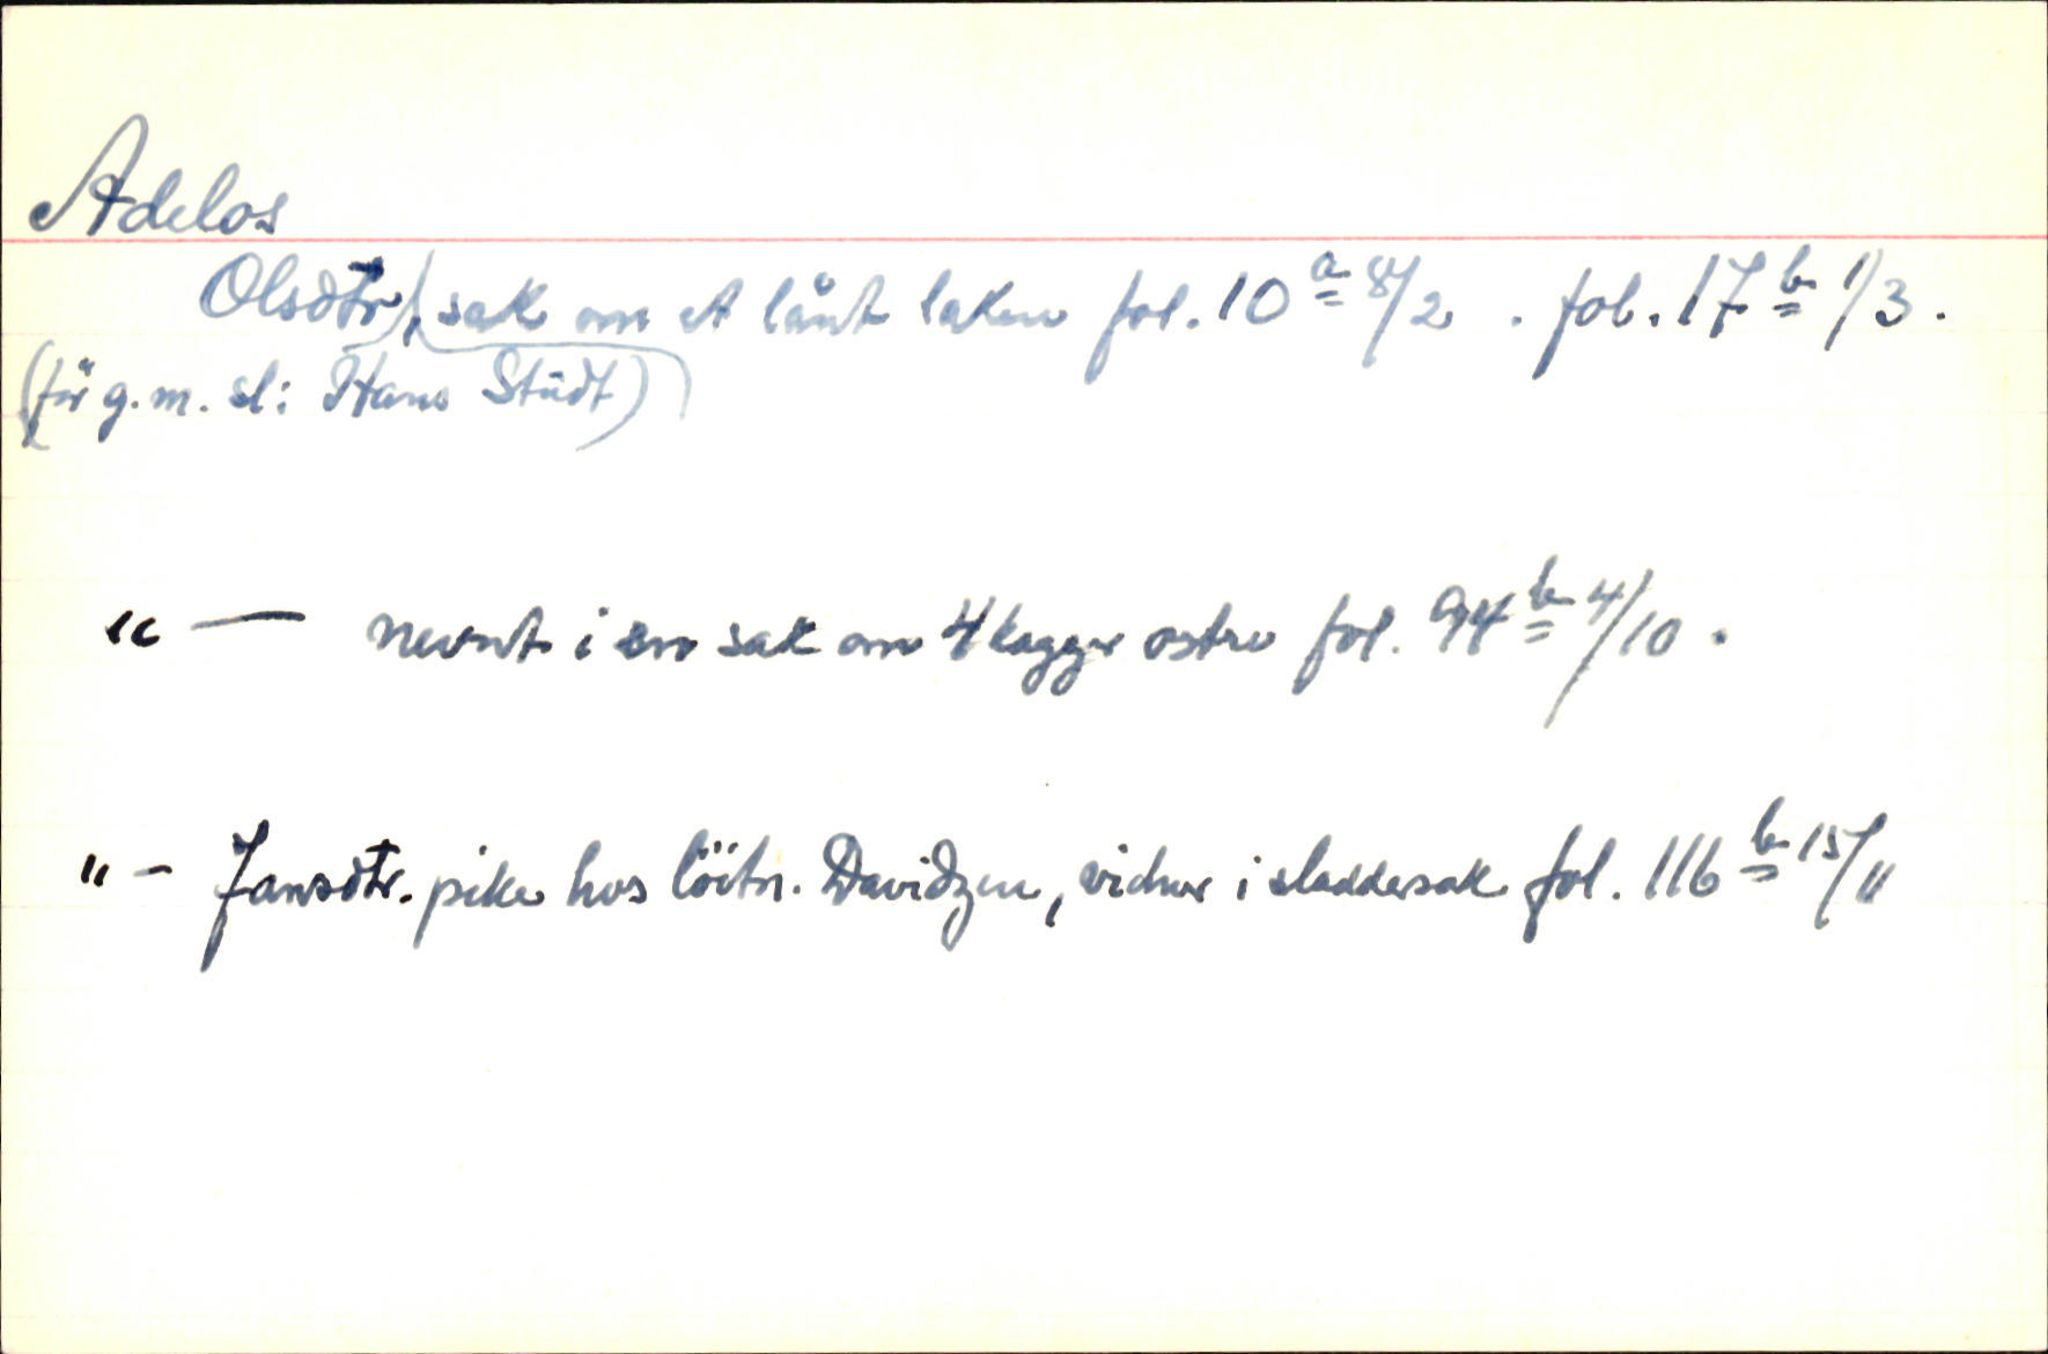 Adelos
Olsdtr, sak om et lånt laken fol. 10 a 8/2 . fol. 17 b 1/3 .
(før g. m. sl: Hans Stüdt)
" — nevnt i en sak om 4 kagger østre fol. 94 b 4/10 .
" - Jansdtr. pike hos löitn. Davidzen, vidner i sladdersak fol. 116 b 15/11